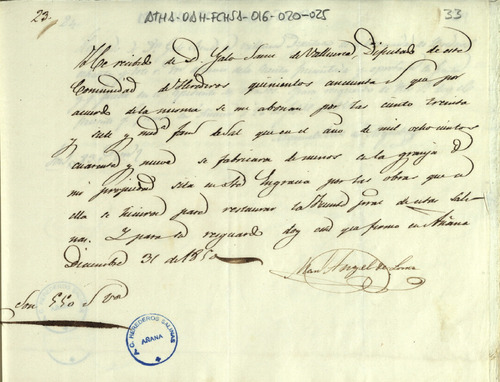 23.
ATHA-DAH-FCHSA-016-020-025
33
He recibido de D. Galo Saez de Valluerca, Diputado de esta
Comunidad de Herederos quinientos cincuenta rs. que por
acuerdo de la misma se me abonan por las ciento treinta
y siete y med.ª fan.s de Sal que en el año de mil ochocientos
cuarenta y nueve se fabricaron de menos en la granja de
mi propiedad sita en Sta. Engracia por las obras que en
ella se hicieron para restaurar la de esta Sali-
nas. Y para su resguardo doy este que firmo en Añana
Diciembre 31 de 1850
Angel de
Son 550 rs. vn.
A.C. HEREDEROS SALINAS
AÑANA